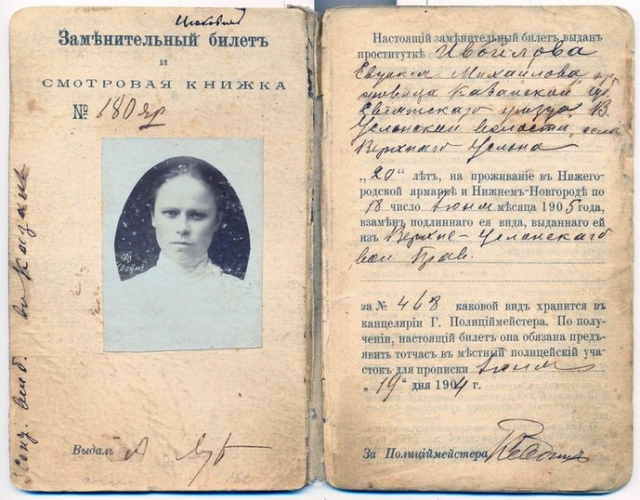 Замѣнительный билетъ
и
СМОТРОВАЯ КНИЖКА
№ 180 яр
Выдалъ
Настоящій замѣнительный билетъ выданъ
проституткѣ Ивойлова
Евдокия Михайлова
Казанской губ
Свіяжскаго уѣзда, В.
Услонской волости, села
Верхняго Услона
„20“ лѣтъ, на проживаніе въ Нижего-
родской ярмаркѣ и Нижнемъ-Новгородѣ по
18 число Іюня мѣсяца 1905 года,
взамѣнъ подлиннаго ея вида, выданнаго ей
изъ Верхне-Услонскаго
вол Прав.
за № 468 каковой видъ хранится въ
канцеляріи Г. Полиціймейстера. По полу-
ченіи, настоящій билетъ она обязана предъ-
явить тотчасъ въ мѣстный полицейскій уча-
стокъ для прописки Іюня
„19“ дня 1904 г.
За Полиціймейстера